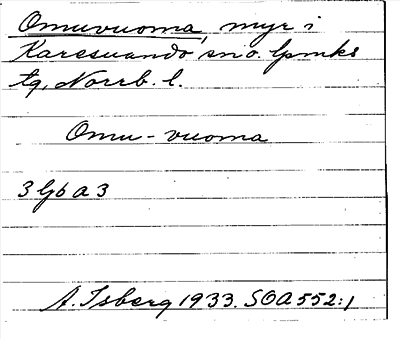 Omuvuoma, myr i
Karesuando sn o. lpmks
tg, Norrb. l.
Omu-vuoma
3 lyb a 3
A. Isberg 1933. SOA 552:1